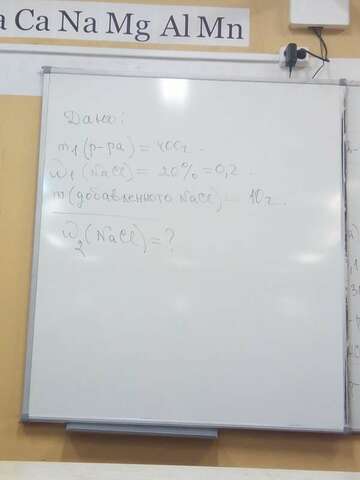 a Ca Na Mg Al Mn
Дано:
m₁(р-ра) = 400г.
ω₁(NaCl) = 20% = 0,2.
m(добавленного NaCl) = 10г.
ω₂(NaCl) = ?